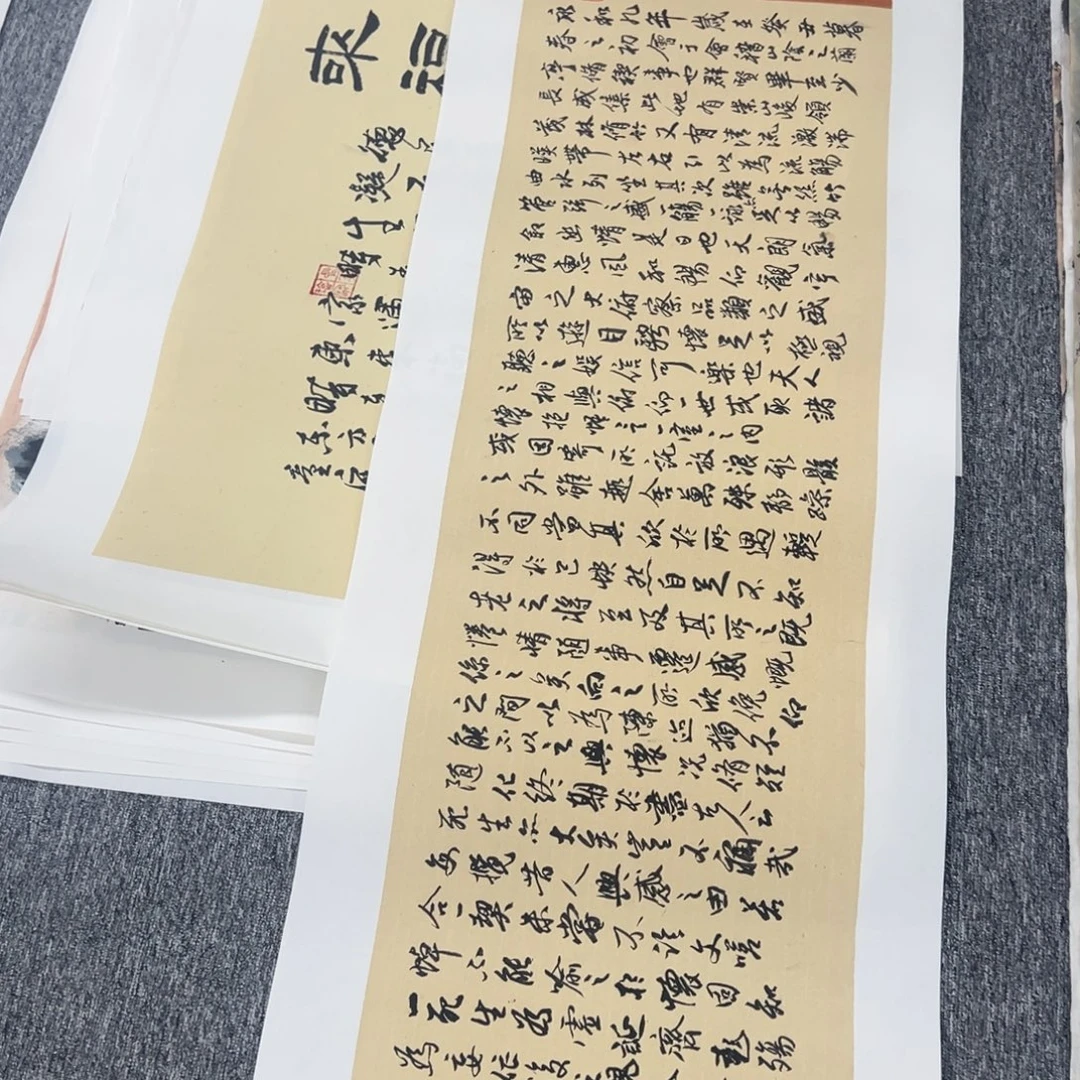 來福
永和九年歲在癸丑暮
春之初會于會稽山陰之蘭
亭脩稧事也群賢畢至少
長咸集此地有崇山峻領
茂林脩竹又有清流激湍
暎帶左右引以為流觴
曲水列坐其次雖無絲竹
管弦之盛一觴一詠足以暢
叙幽情是日也天朗氣
清惠風和暢仰觀宇
宙之大俯察品類之盛
所以遊目騁懷足以極視
聽之娛信可樂也夫人
之相與俯仰一世或取諸
懷抱悟言一室之內
或因寄所託放浪形骸
之外雖趣舍萬殊靜躁
不同當其欣於所遇暫
得於己怏然自足不知
老之將至及其所之既
惓情隨事遷感慨
係之矣向之所欣俛仰
之間以為陳迹猶不
能不以之興懷況脩短
隨化終期於盡古人云
死生亦大矣豈不痛哉
每攬昔人興感之由若
合一契未嘗不臨文嗟
悼不能喻之於懷固知
一死生為虛誕齊彭殤
為妄作後